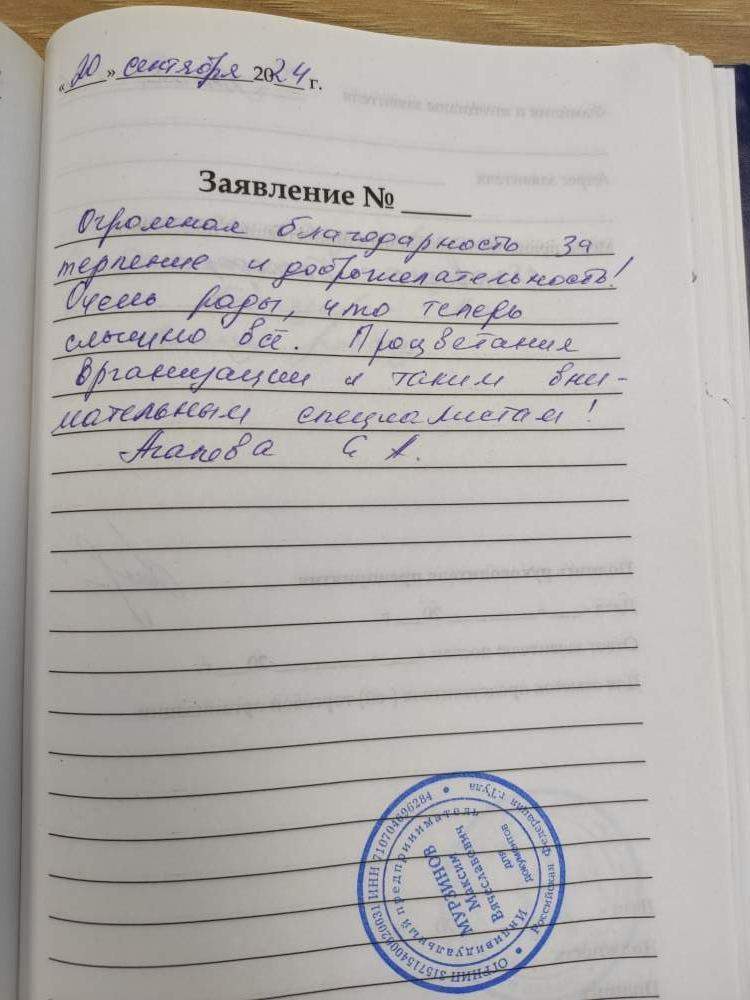 «20» сентября 2024 г.
Заявление № ____
Огромная благодарность за
терпение и доброжелательность!
Очень рады, что теперь
слышно всё. Процветания
организации и таким вни-
мательным специалистам!
Агапова С А.
Российская Федерация г.Тула
Индивидуальный предприниматель
МУРЗИНОВ
Максим
Вячеславович
для
документов
ИНН 710704696284